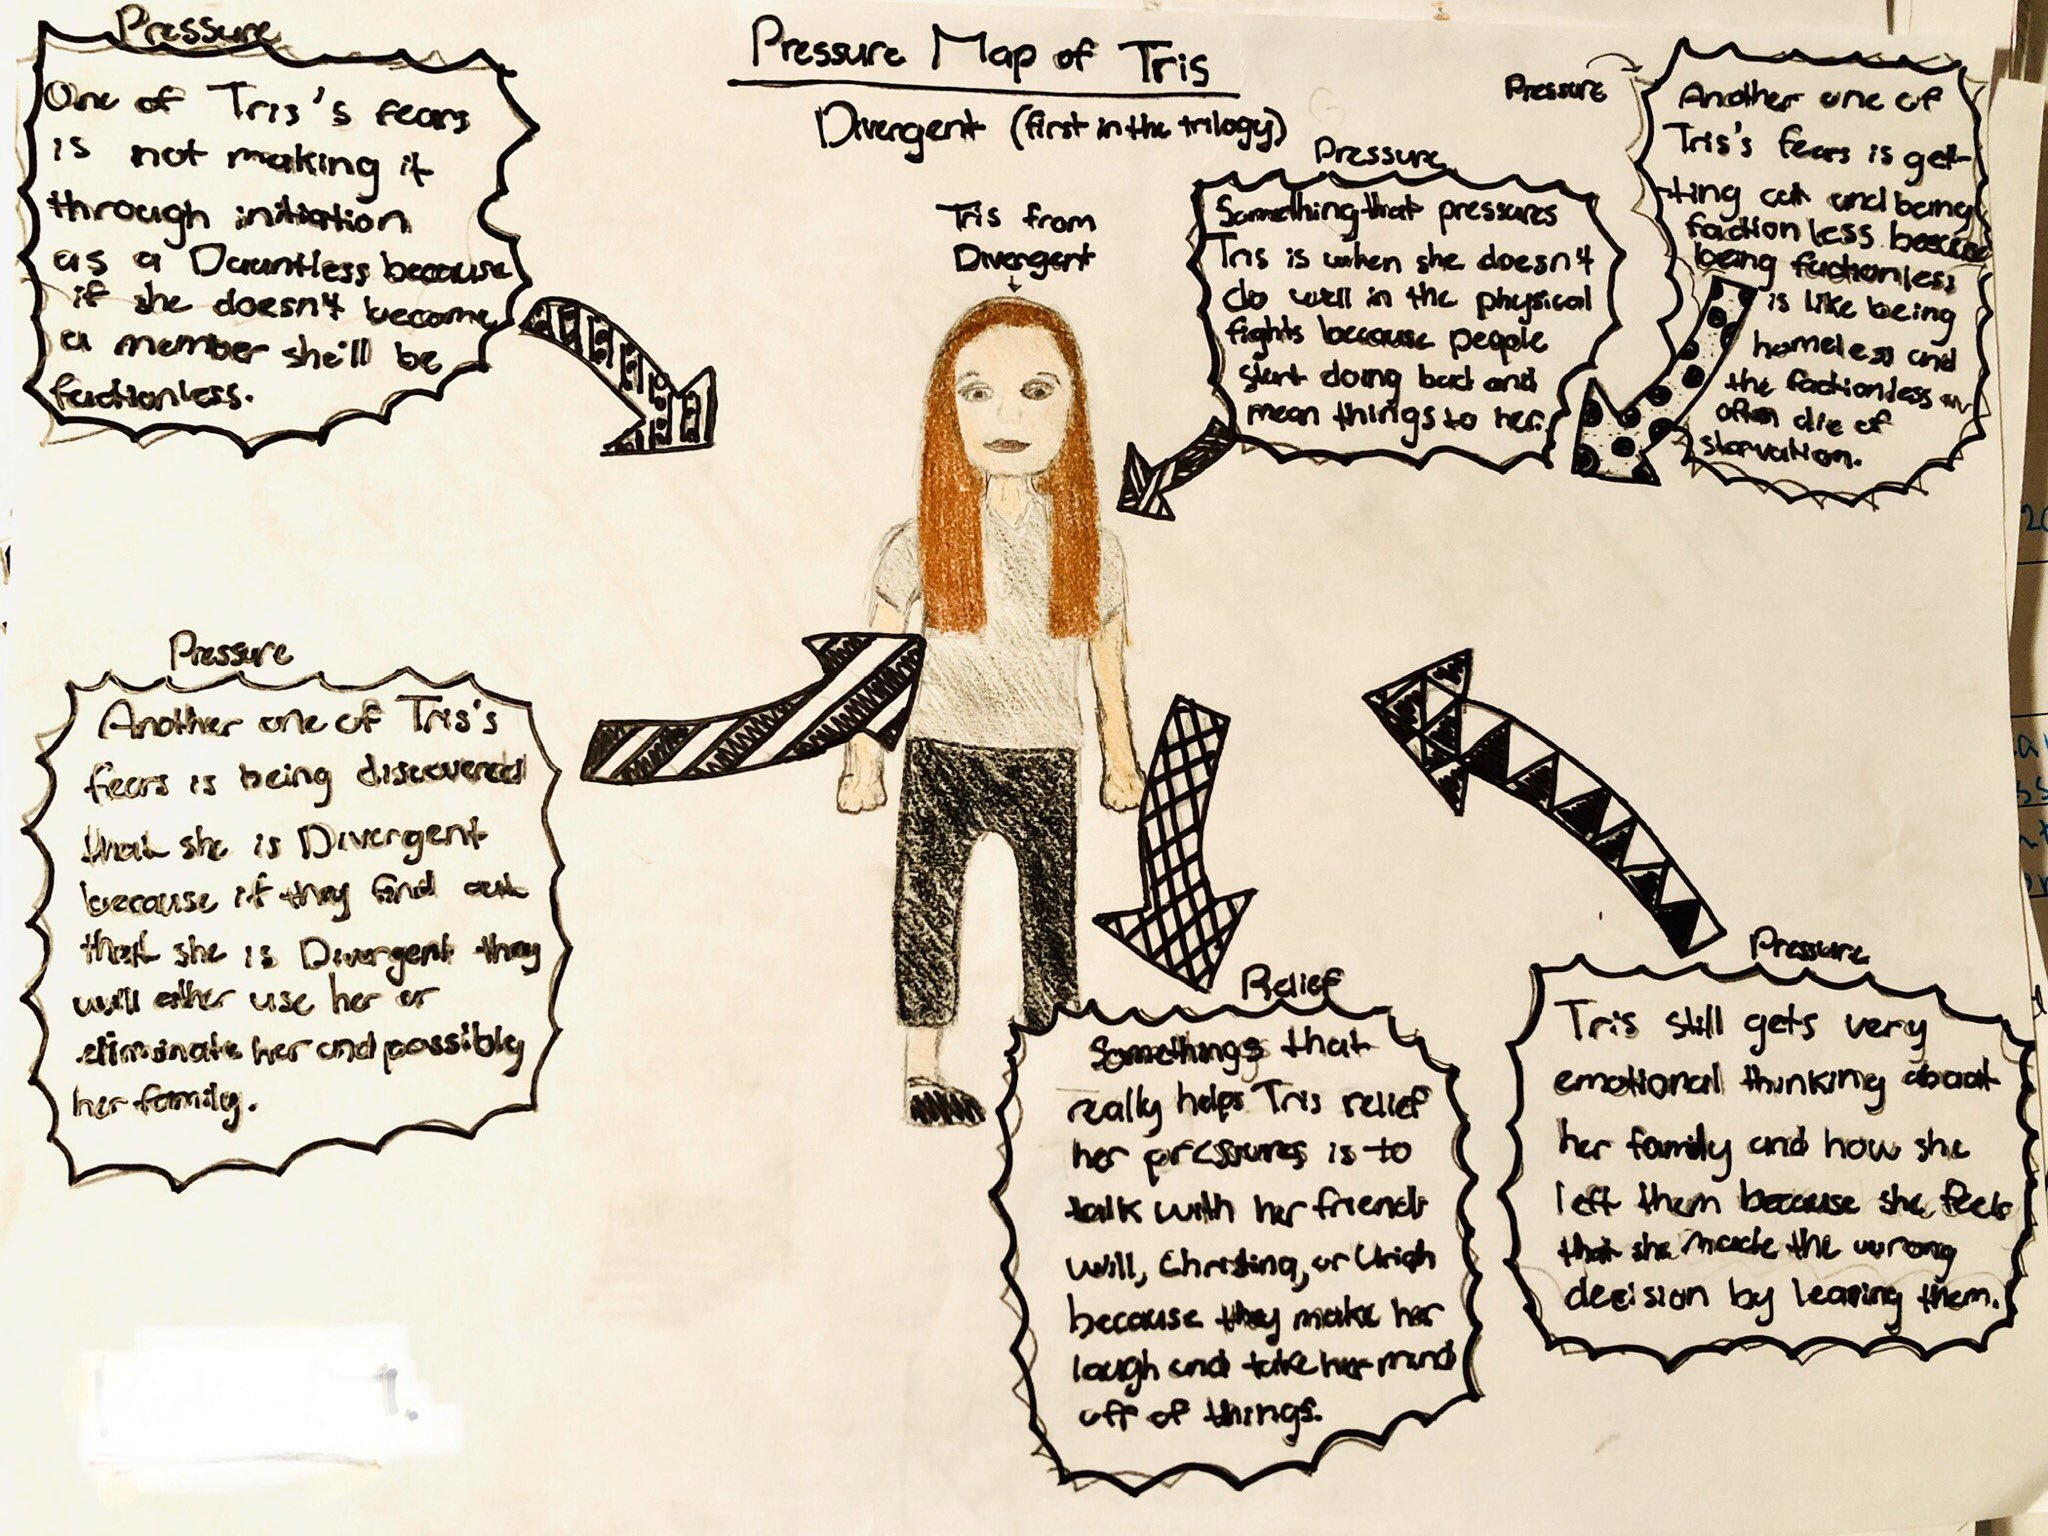 Pressure Map of Tris
Divergent (first in the trilogy)
Tris from
Divergent
Pressure
One of Tris's fears
is not making it
through initiation
as a Dauntless because
if she doesn't become
a member she'll be
factionless.
Pressure
Something that pressures
Tris is when she doesn't
do well in the physical
fights because people
start doing bad and
mean things to her.
Pressure
Another one of
Tris's fears is get-
ting cut and being
factionless because
being factionless
is like being
homeless and
the factionless
often die of
starvation.
Pressure
Another one of Tris's
fears is being discovered
that she is Divergent
because if they find out
that she is Divergent they
will either use her or
eliminate her and possibly
her family.
Relief
Somethings that
really helps Tris relief
her pressures is to
talk with her friends
Will, Christina, or Uriah
because they make her
laugh and take her mind
off of things.
Pressure
Tris still gets very
emotional thinking about
her family and how she
left them because she feels
that she made the wrong
decision by leaving them.